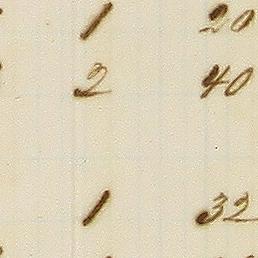 1 20
2 40
1 32